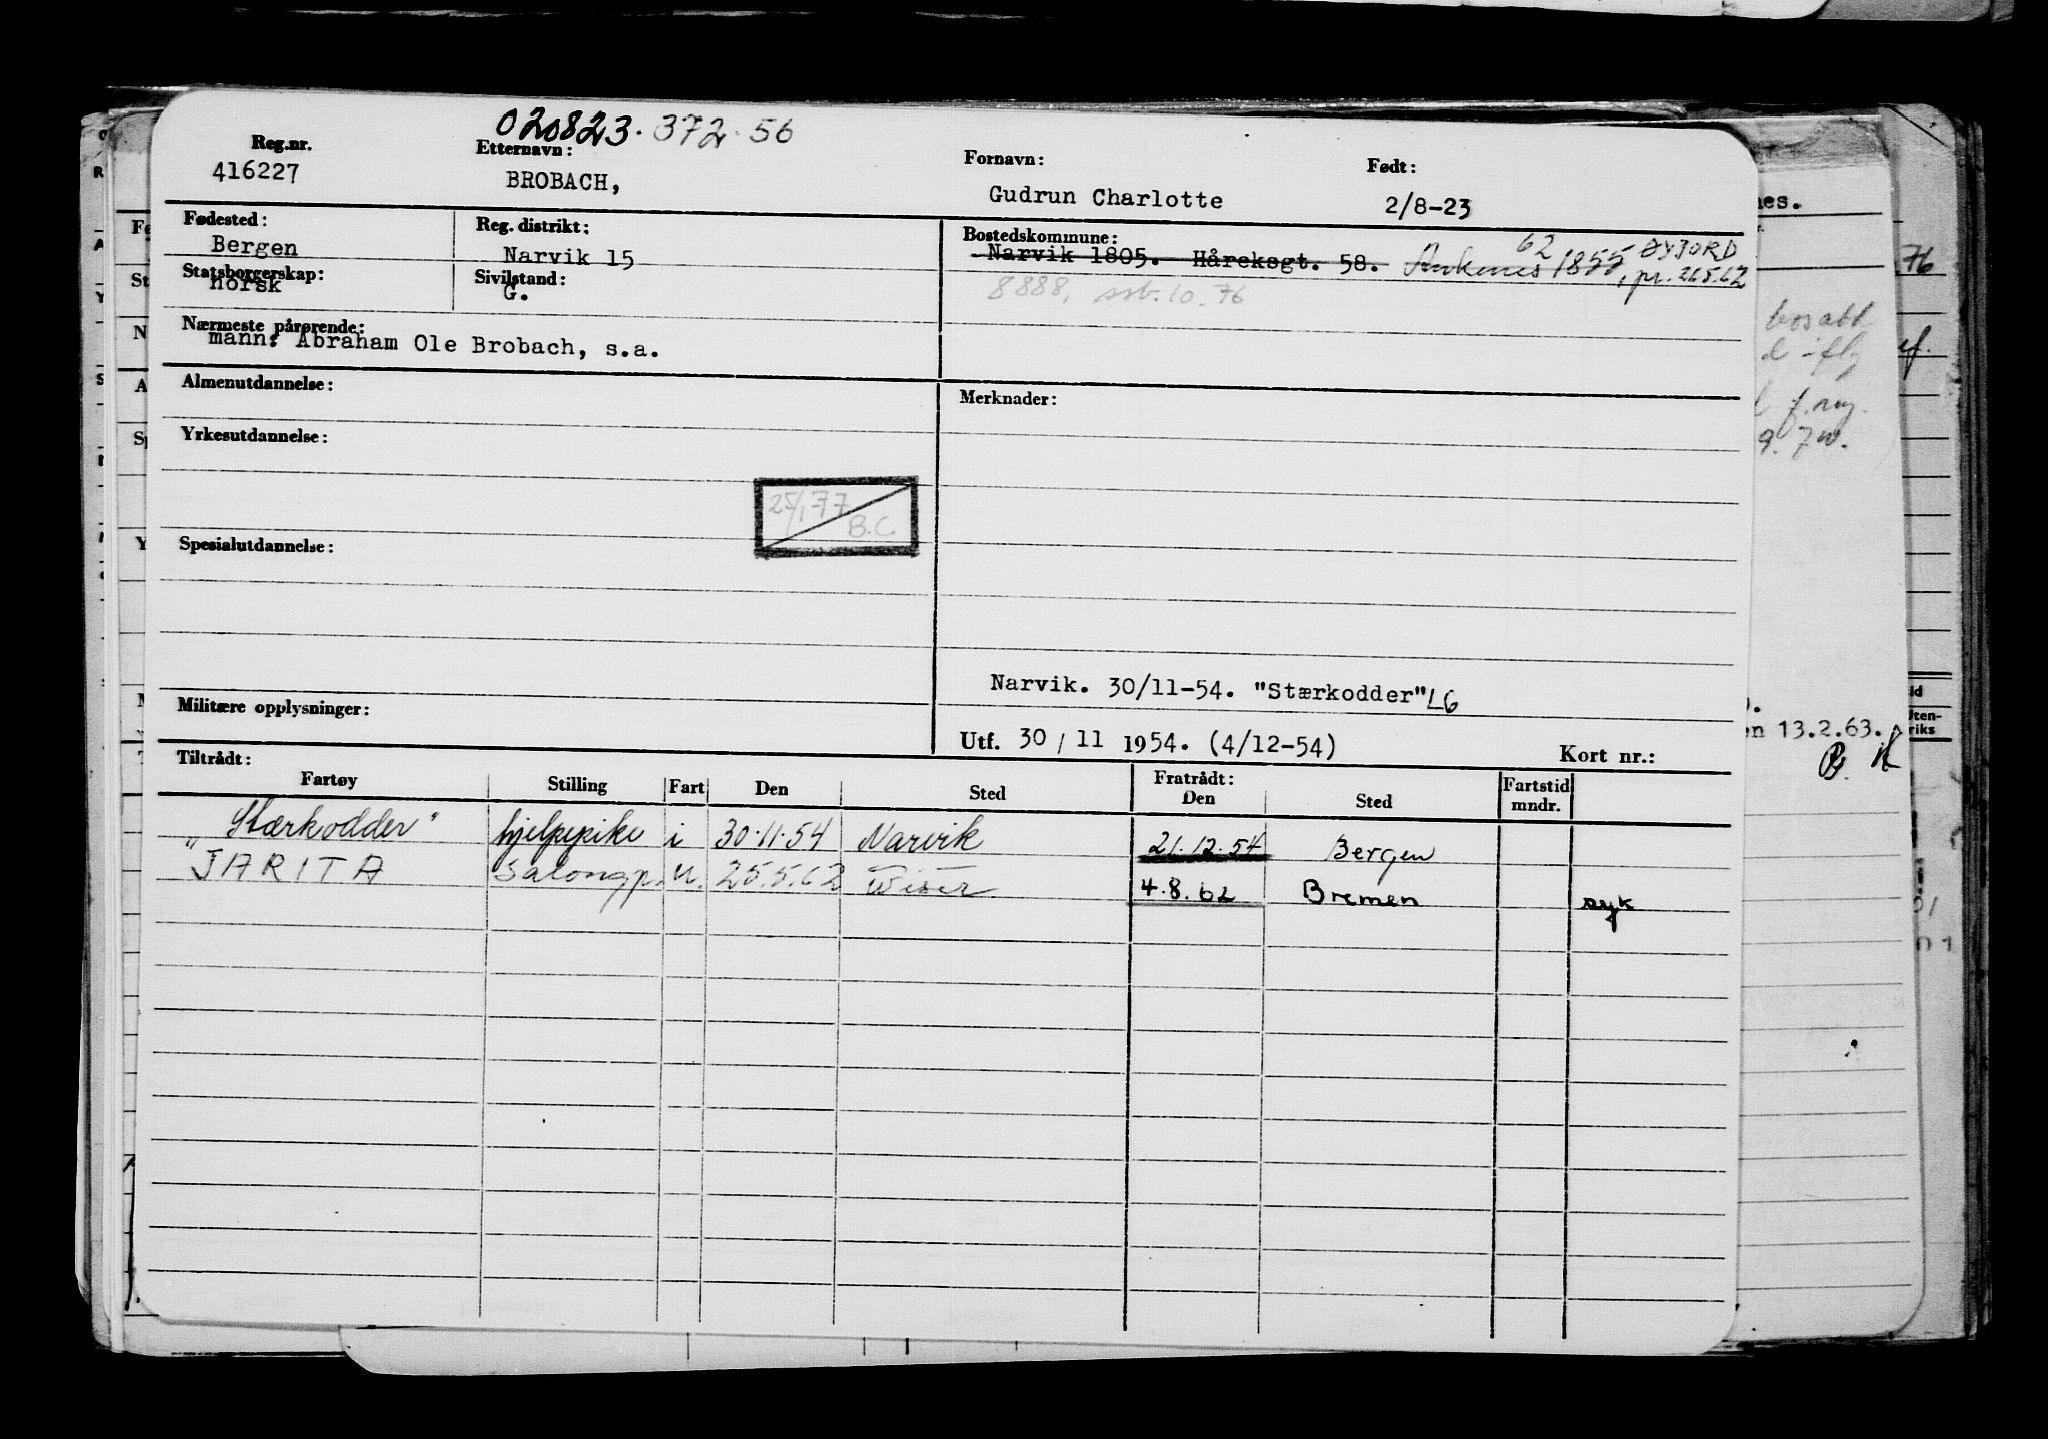 020823.372.56
Reg.nr. Etternavn: Fornavn: Født:
416227 BROBACH, Gudrun Charlotte 2/8-23
Fødested: Reg. distrikt: Bostedskommune:
Bergen Narvik 15 Narvik 1805. Håreksgt. 58. Ankenes 1855, 62 ØYJORD
pr. 26.5.62
Statsborgerskap: Sivilstand:
norsk G. 8888, ssb. 10.76
Nærmeste pårørende:
mann: Abraham Ole Brobach, s.a.
Almenutdannelse: Merknader:
Yrkesutdannelse:
25/1 77
B.C.
Spesialutdannelse:
Narvik. 30/11-54. "Stærkodder" LG
Militære opplysninger:
Utf. 30/11 1954. (4/12-54) Kort nr.:
Tiltrådt: Fratrådt:
Fartøy Stilling Fart Den Sted Den Sted Fartstid mndr.
"Stærkodder" hjelpepike i 30.11.54 Narvik 21.12.54 Bergen
JARITA Salongp. u. 25.5.62 4.8.62 Bremen syk
nes.
76
bosatt
13.2.63.